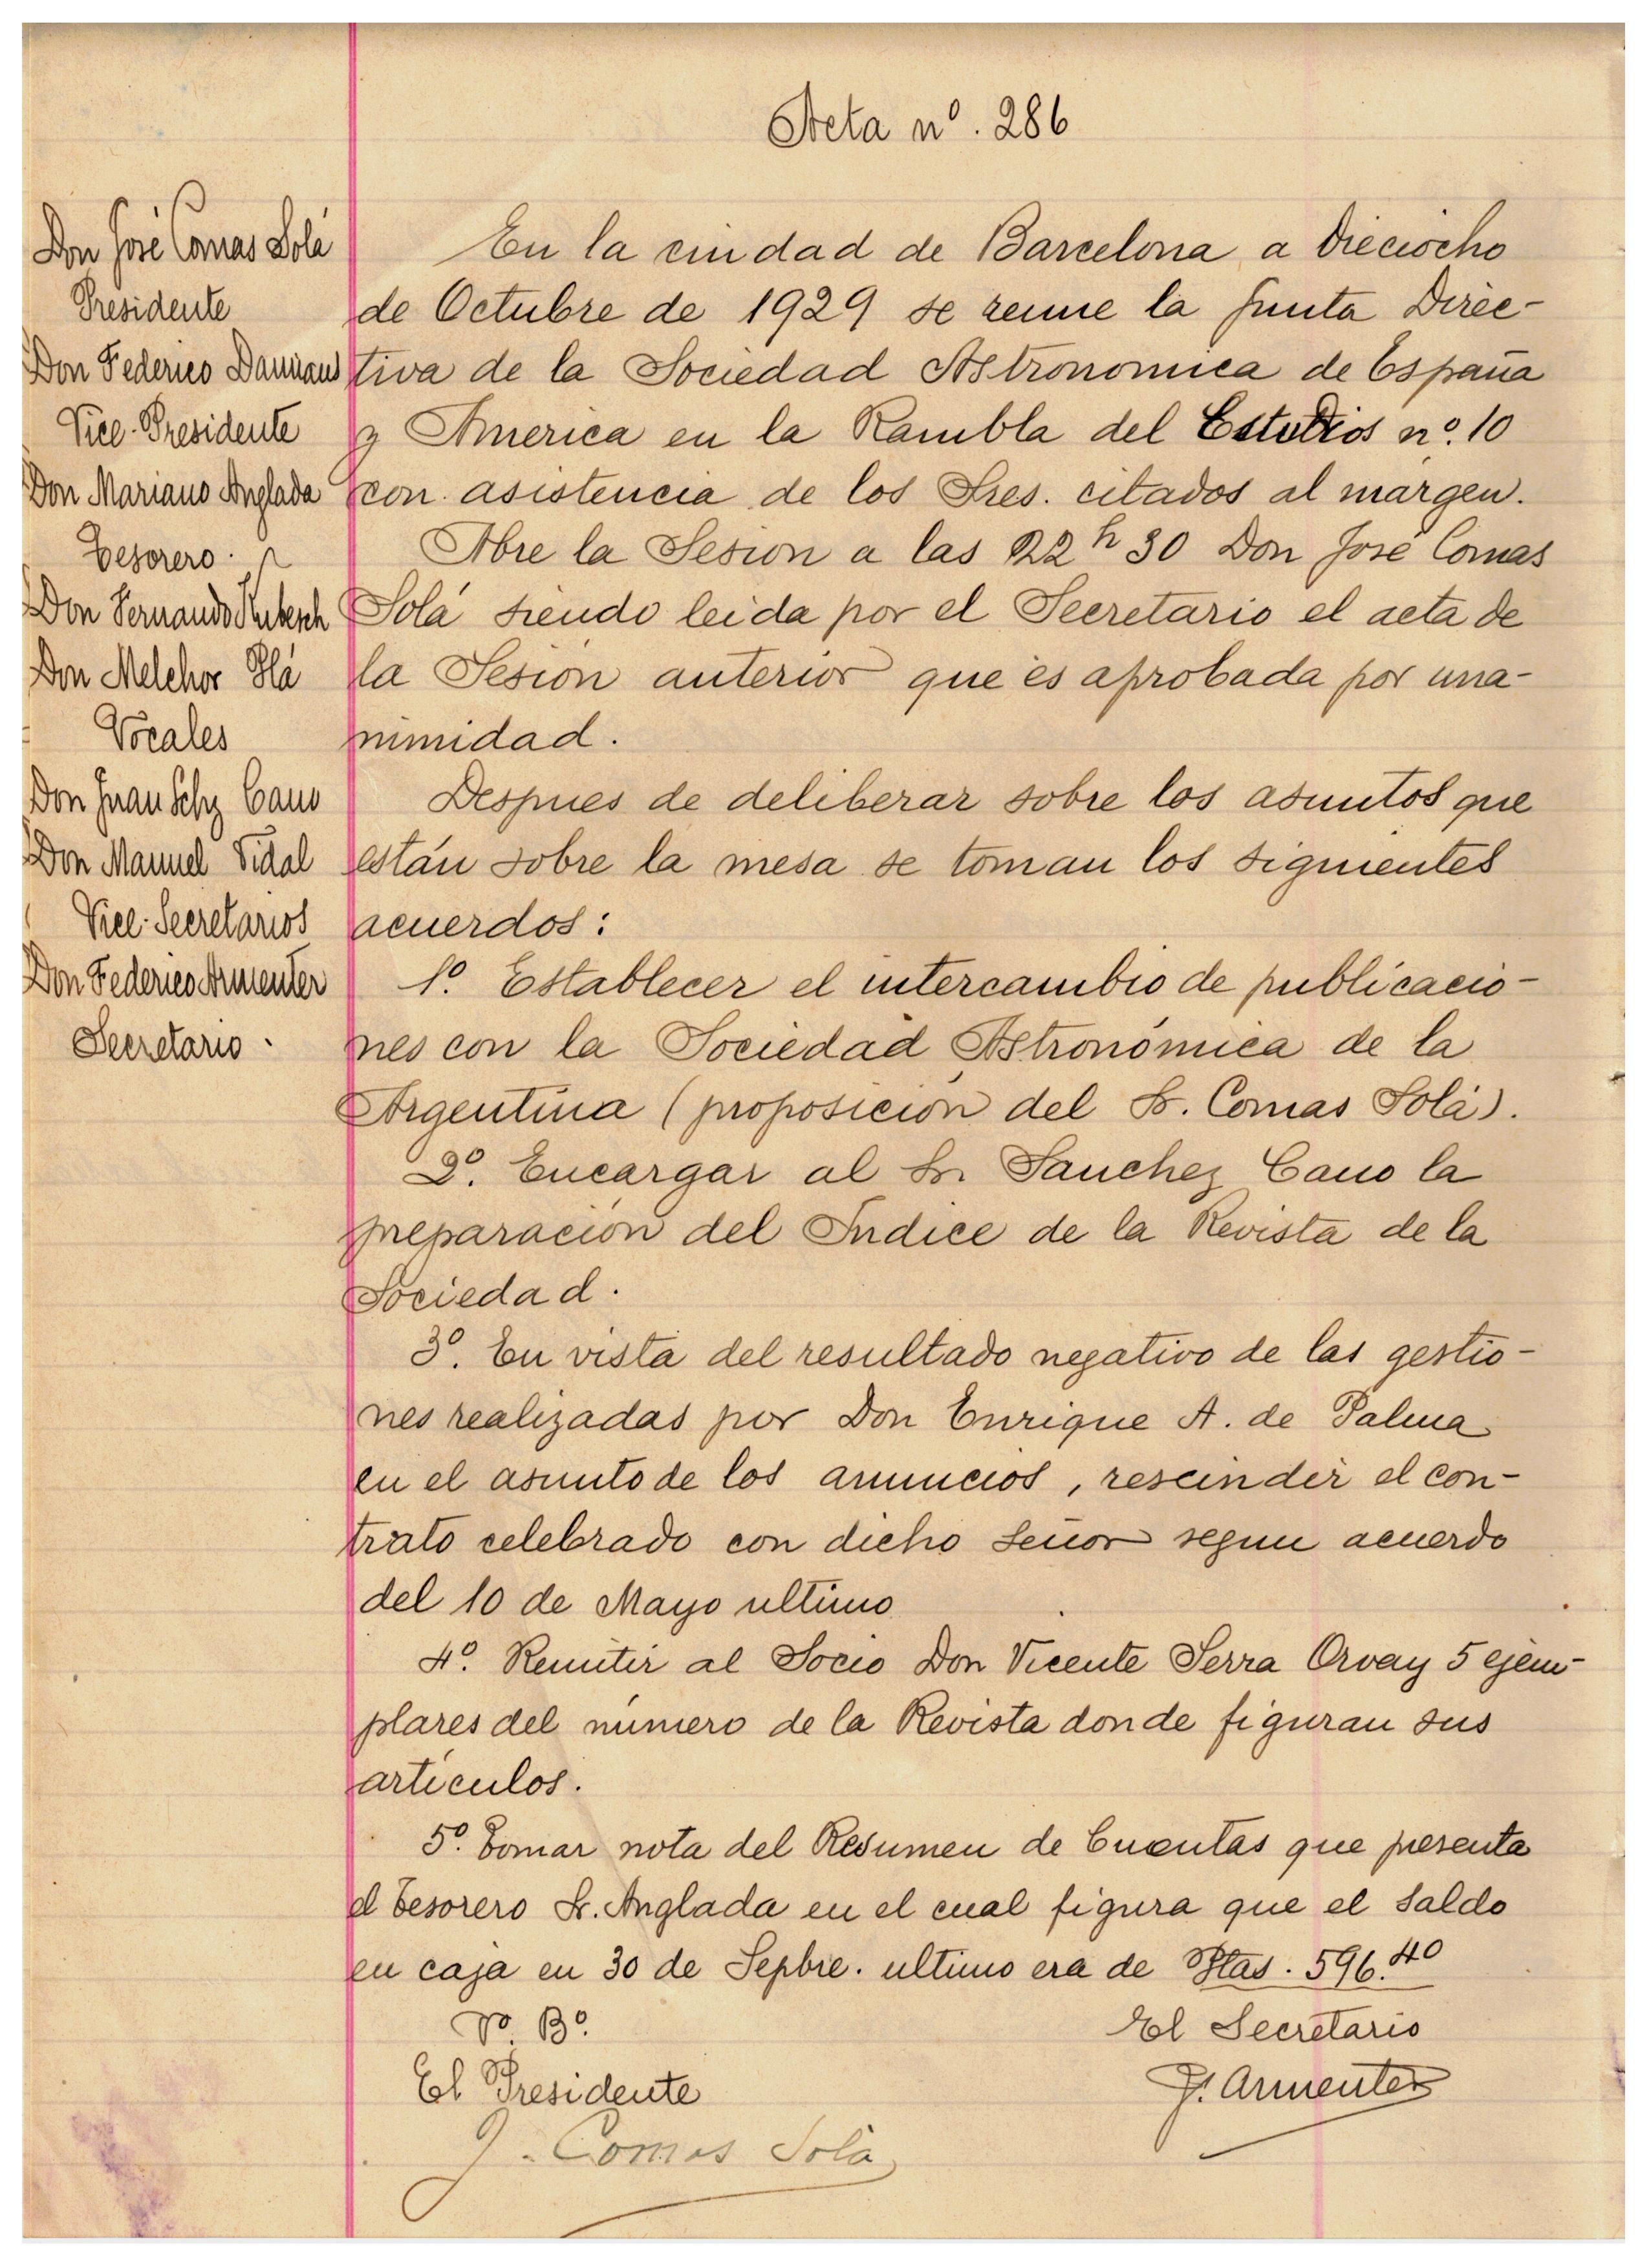 Acta nº. 286
Don José Comas Solá
Presidente
Don Federico Damians
Vice-Presidente
Don Mariano Anglada
Tesorero.
Don Fernando
Don Melchor Plá
Vocales
Don Juan Schz Cano
Don Manuel Vidal
Vice-Secretarios
Don Federico Armenter
Secretario.
En la ciudad de Barcelona a dieciocho
de Octubre de 1929 se reune la Junta Direc-
tiva de la Sociedad Astronomica de España
y America en la Rambla del Estudios nº. 10
con asistencia de los Sres. citados al margen.
Abre la Sesion a las 22 h 30 Don José Comas
Solá siendo leida por el Secretario el acta de
la Sesion anterior que es aprobada por una-
nimidad.
Despues de deliberar sobre los asuntos que
están sobre la mesa se toman los siguientes
acuerdos:
1º. Establecer el intercambio de publicacio-
nes con la Sociedad Astronómica de la
Argentina (proposición del Sr. Comas Solá).
2º. Encargar al Sr. Sanchez Cano la
preparación del Indice de la Revista de la
Sociedad.
3º. En vista del resultado negativo de las gestio-
nes realizadas por Don Enrique A. de Palma
en el asunto de los anuncios, rescindir el con-
trato celebrado con dicho señor segun acuerdo
del 10 de Mayo ultimo
4º. Remitir al Socio Don Vicente Serra Orvay 5 ejem-
plares del número de la Revista donde figuran sus
artículos.
5º. Tomar nota del Resumen de Cuentas que presenta
el Tesorero Sr. Anglada en el cual figura que el saldo
en caja en 30 de Sepbre. ultimo era de Ptas. 596.40
Vº Bº.
El Secretario
El Presidente
F. Armenter
J. Comas Solà